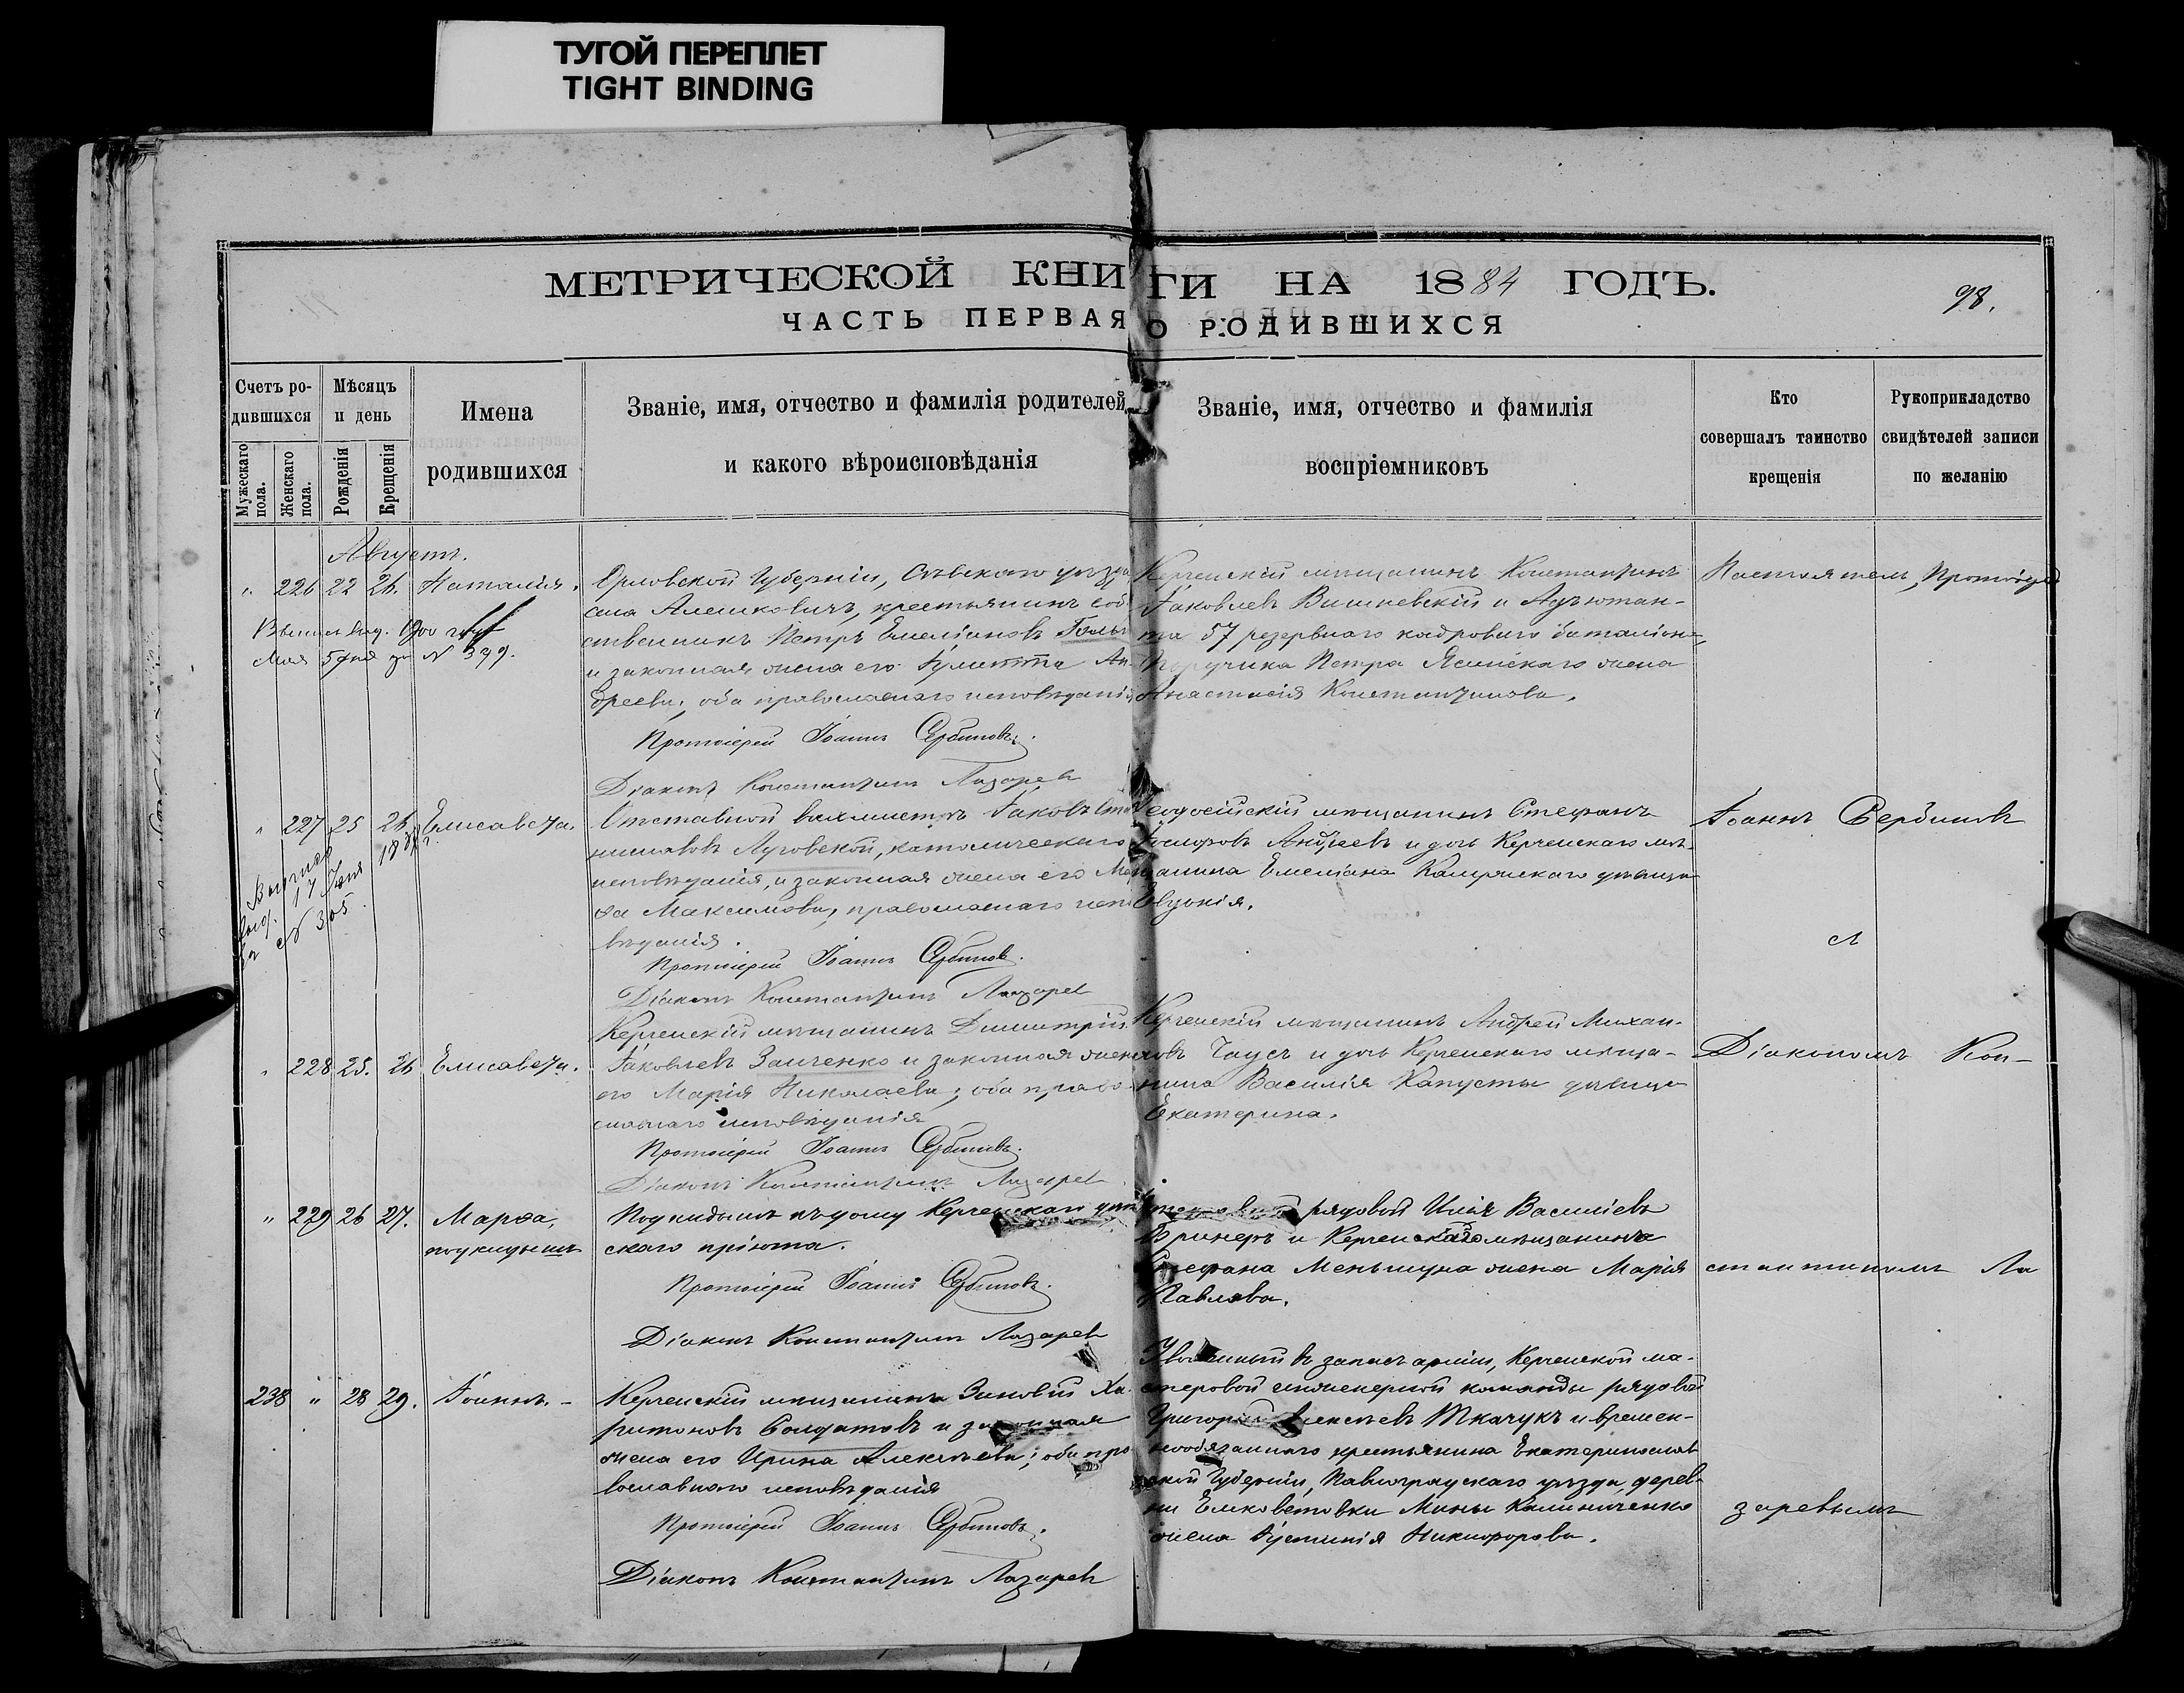 ТУГОЙ ПЕРЕПЛЕТ
TIGHT BINDING
МЕТРИЧЕСКОЙ КНИГИ НА 1884 ГОДЪ.
98.
ЧАСТЬ ПЕРВАЯ О РОДИВШИХСЯ
Счетъ ро-
дившихся
Мужескаго пола.
Женскаго пола.
Мѣсяцъ
и день
Рожденія
Крещенія
Имена
родившихся
Званіе, имя, отчество и фамилія родителей,
и какого вѣроисповѣданія
Званіе, имя, отчество и фамилія
воспріемниковъ
Кто
совершалъ таинство
крещенія
Рукоприкладство
свидѣтелей записи
по желанію
Августъ.
" 226 22 26. Наталія.
мая 5 дня за № 399.
Орловской Губерніи, Сѣвскаго уѣзда
села Алешковичъ, крестьянинъ соб
ственникъ Петръ Емеліановъ
и законная жена его Ан-
дреева, оба православнаго исповѣданія,
Протоіерей Іоаннъ Сербиновъ.
Діаконъ Константинъ Лазарев
Керченскій мѣщанинъ Константинъ
Іаковлевъ Вишневскій и Адъютан-
та 57 резервнаго кадроваго баталіона,
Поручика Петра Ясинскаго жена
Анастасія Константинова.
Настоятель, Протоіерей
" 227 25 26. Елисавета.
17
№ 305.
Отставной вахмистръ Іаковъ
Луговской, католическаго
исповѣданія, и законная жена его Мар
ѳа Максимова, православнаго испо
вѣданія.
Протоіерей Іоаннъ Сербинов.
Діаконъ Константинъ Лазарев
Ѳеодосійскій мѣщанинъ Стефанъ
Андреевъ и дочь Керченскаго мѣ-
щанина Емеліана дѣвица
Евдокія.
Іоаннъ Сербиновъ
с
" 228 25. 26 Елисавета.
Керченскій мѣщанинъ Димитрій
Іаковлевъ Заиченко и законная жена
его Марія Николаева; оба право-
славнаго исповѣданія
Протоіерей Іоаннъ Сербиновъ.
Діаконъ Константинъ Лазарев
Керченскій мѣщанинъ Андрей Михаи-
ловъ Чаусъ и дочь Керченскаго мѣща-
нина Василія Капусты дѣвица
Екатерина.
Діакономъ Кон-
" 229 26 27. Марѳа,
подкидышъ
Подкидышъ къ дому Керченскаго
скаго пріюта.
Протоіерей Іоаннъ Сербиновъ.
Діаконъ Константинъ Лазаревъ
рядовой Илія Василіевъ
и Керченскаго мѣщанина
Стефана Меньшуна жена Марія
Павлова.
стантиномъ Ла
238 " 28 29. Іоаннъ. -
Керченскій мѣщанинъ Зиновій Ха-
ритоновъ Солдатовъ и законная
жена его Ирина Алексѣева; оба пра
вославнаго исповѣданія
Протоіерей Іоаннъ Сербиновъ.
Діаконъ Константинъ Лазаревъ
Уволенный въ запасъ арміи, Керченской ма-
стеровой инженерной команды рядовой
Григорій Алексѣевъ Ткачукъ и времен-
нообязаннаго крестьянина Екатеринослав
ской Губерніи, Павлоградскаго уѣзда, дерев-
ни Мины Калиниченко
жена Іустинія Никифорова.
заревымъ